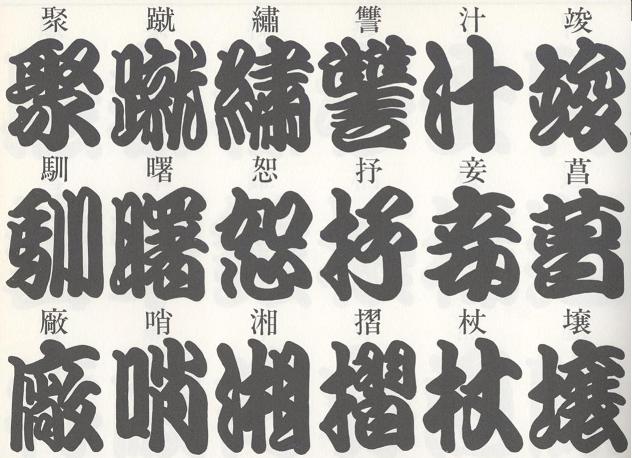 聚 蹴 繡 讐 汁 竣
聚 蹴 繡 讐 汁 竣
馴 曙 恕 抒 妾 菖
馴 曙 恕 抒 妾 菖
廠 哨 湘 摺 杖 壌
廠 哨 湘 摺 杖 壌